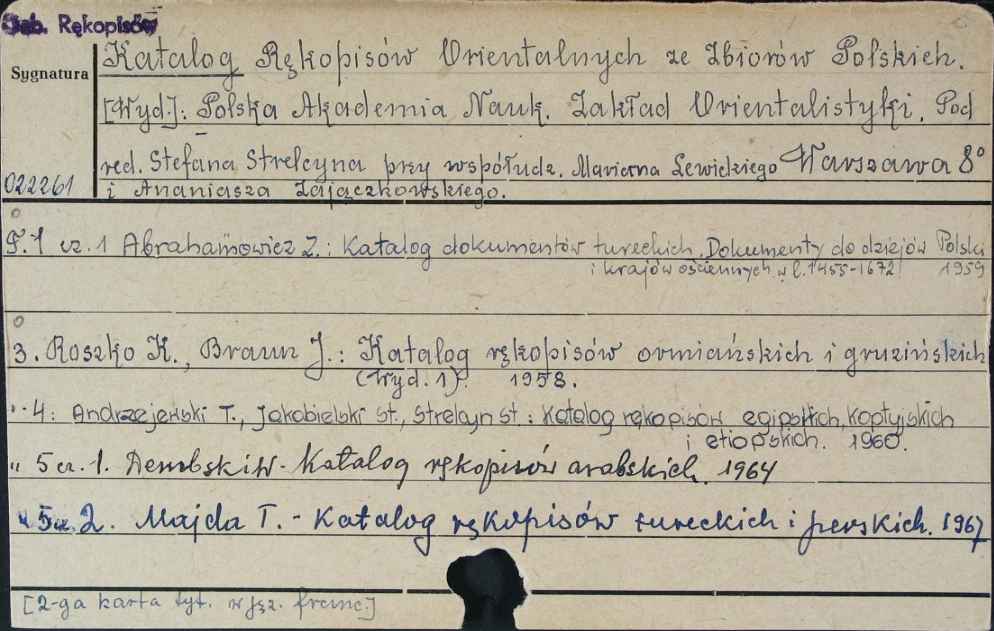 Gab. Rękopisów
Sygnatura
Katalog Rękopisów Orientalnych ze Zbiorów Polskich.
[Wyd]: Polska Akademia Nauk. Zakład Orientalistyki. Pod
red. Stefana Strelcyna przy współudz. Mariana Lewickiego Warszawa 8°
022261 i Ananiasza Zajączkowskiego.
T. 1 cz. 1 Abrahamowicz Z.: Katalog dokumentów tureckich. Dokumenty do dziejów Polski
i krajów ościennych w l. 1455-1672 1959
3. Roszko K., Braun J.: Katalog rękopisów ormiańskich i gruzińskich
(Wyd. 1). 1958.
" 4: Andrzejewski T., Jakobielski St., Strelcyn St.: Katalog rękopisów egipskich, koptyjskich
i etiopskich. 1960.
" 5 cz. 1. Dembski W. Katalog rękopisów arabskich. 1964
" 5 cz. 2. Majda T. - Katalog rękopisów tureckich i perskich. 1967
[2-ga karta tyt. w jęz. franc.]